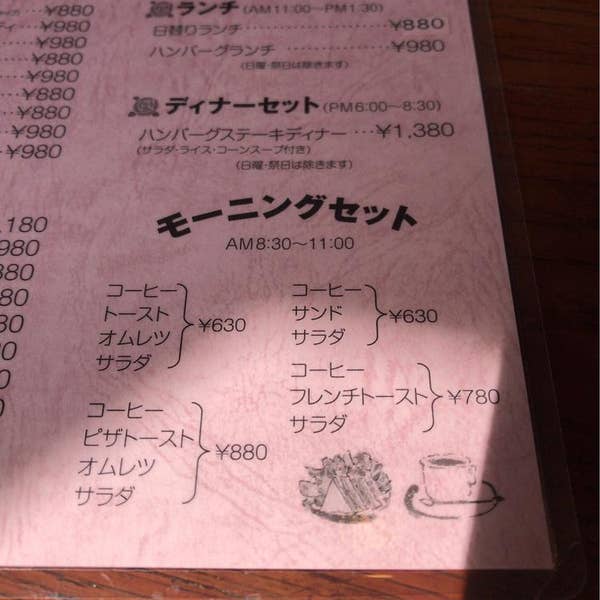 ¥880
¥980
¥880
¥880
¥980
¥980
180
980
880
80
80
0
ランチ(AM11:00〜PM1:30)
日替りランチ……¥880
ハンバーグランチ……¥980
(日曜・祭日は除きます)
ディナーセット(PM6:00〜8:30)
ハンバーグステーキディナー…¥1,380
(サラダ・ライス・コーンスープ付き)
(日曜・祭日は除きます)
モーニングセット
AM8:30〜11:00
コーヒー
トースト
オムレツ
サラダ
¥630
コーヒー
サンド
サラダ
¥630
コーヒー
ピザトースト
オムレツ
サラダ
¥880
コーヒー
フレンチトースト
サラダ
¥780